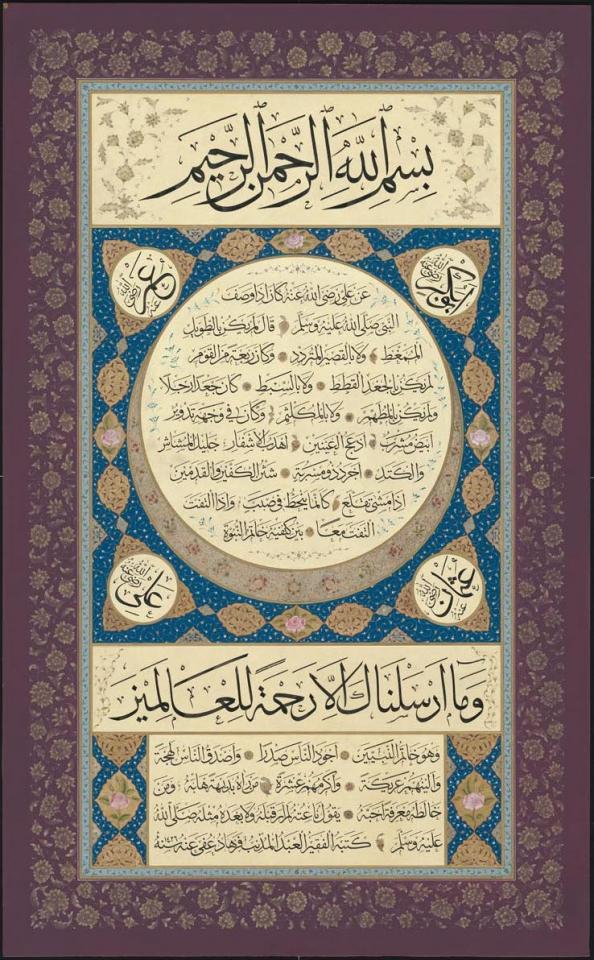 بسم الله الرحمن الرحيم
ابو بكر رضي الله عنه
عمر رضي الله عنه
عن علي رضي الله عنه كان اذا وصف
النبي صلى الله عليه وسلم قال لم يكن بالطويل
الممغط ولا بالقصير المتردد وكان ربعة من القوم
لم يكن بالجعد القطط ولا بالسبط كان جعدا رجلا
ولم يكن بالمطهم ولا بالمكلثم وكان في وجهه تدوير
ابيض مشرب ادعج العينين اهدب الاشفار جليل المشاش
والكتد اجرد ذو مسربة شثن الكفين والقدمين
اذا مشى تقلع كانما ينحط في صبب واذا التفت
التفت معا بين كتفيه خاتم النبوة
عثمان رضي الله عنه
علي رضي الله عنه
وما ارسلناك الا رحمة للعالمين
وهو خاتم النبيين اجود الناس صدرا واصدق الناس لهجة
والينهم عريكة واكرمهم عشرة من رآه بديهة هابه ومن
خالطه معرفة احبه يقول ناعته لم ار قبله ولا بعده مثله صلى الله
عليه وسلم كتبه الفقير العبد المذنب فرهاد عفي عنه سنة